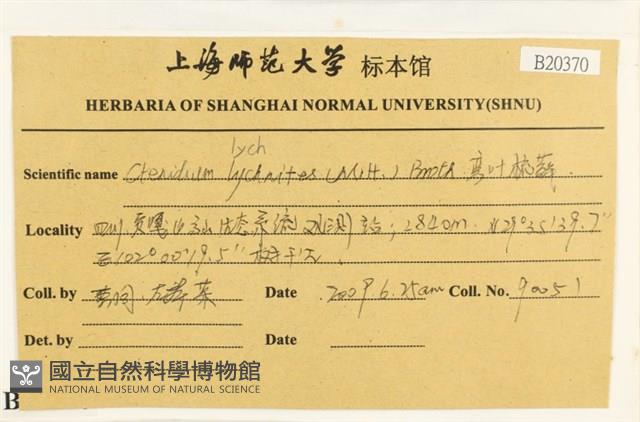 上海师范大学 标本馆
B20370
HERBARIA OF SHANGHAI NORMAL UNIVERSITY(SHNU)
lych
Scientific name Ctenidium lychnites (Mitt.) Broth. 弯叶梳藓
Locality 四川 贡嘎山 生态系统观测站; 2840m. N29°35'39.7"
E102°00'19.5"
Coll. by Date 2009.6.25am Coll. No. 90051
Det. by Date
國立自然科學博物館
NATIONAL MUSEUM OF NATURAL SCIENCE
B